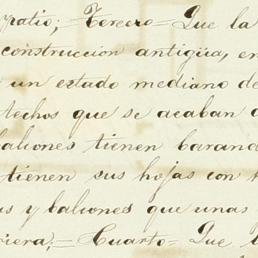 patio; Tercero = Que la
construccion antigua, en
un estado mediano de
techos que se acaban d
balcones tienen baranda
tienen sus hojas con
as y balcones que unas
riera; = Cuarto = Que l